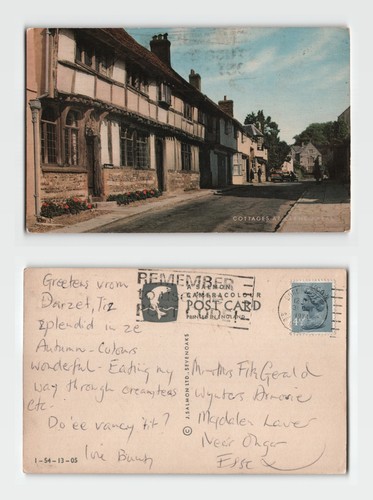 COTTAGES AT
Greetens vrom
Darzet, Tiz
zplendid in ze
Autumn - Colours
wonderful - Eating my
way through creamteas
etc -
Do'ee vancy it?
love
1-54-13-05
REMEMBER
A SALMON
CAMERACOLOUR
POST CARD
PRINTED IN ENGLAND
© J. SALMON LTD., SEVENOAKS
Mr & Mrs FitzGerald
Wynters
Magdalen Laver
Near Ongar
Essex